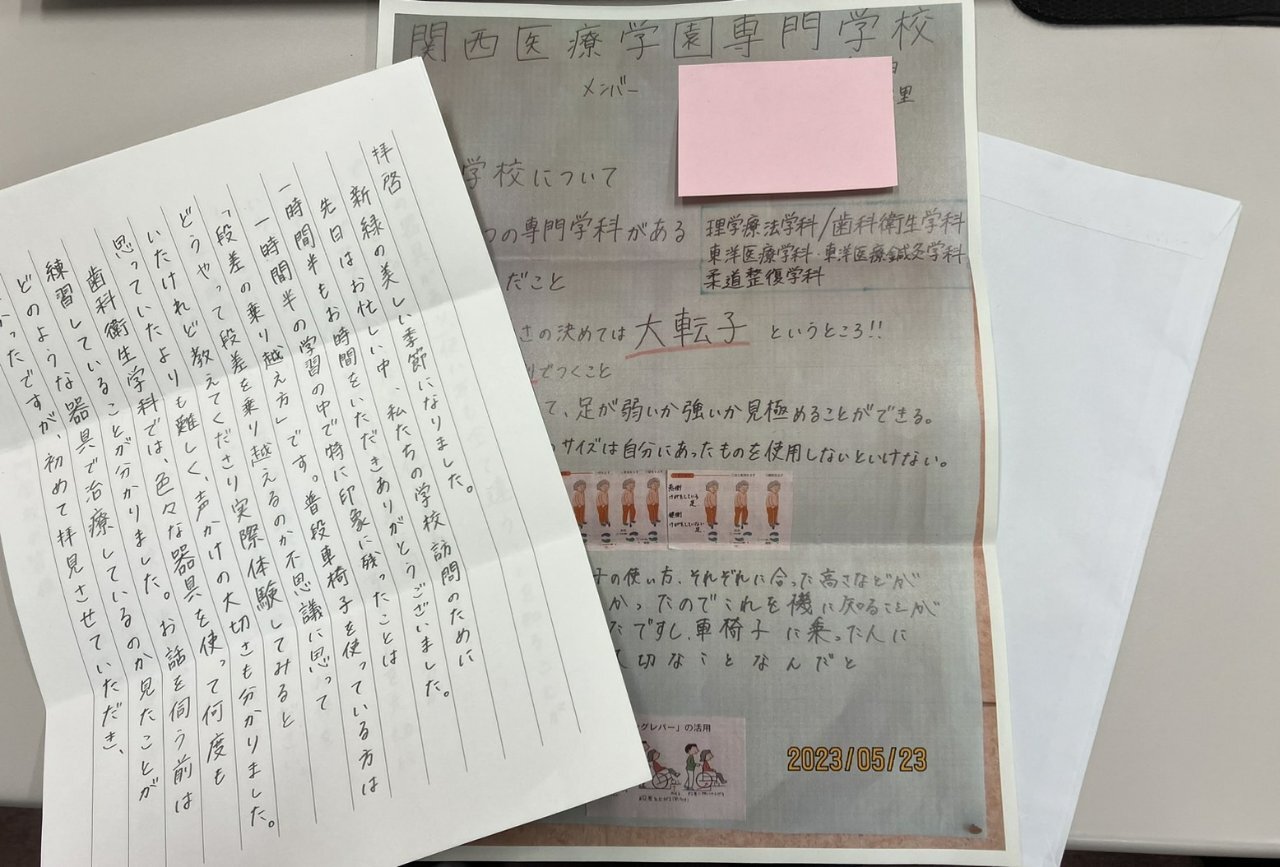 拝啓
新緑の美しい季節になりました。
先日はお忙しい中、私たちの学校訪問のために
一時間半もお時間をいただきありがとうございました。
一時間半の学習の中で特に印象に残ったことは
「段差の乗り越え方」です。普段車椅子を使っている方は
どうやって段差を乗り越えるのか不思議に思って
いたけれど教えてくださり実際体験してみると
思っていたよりも難しく、声かけの大切さも分かりました。
歯科衛生学科では、色々な器具を使って何度も
練習していることが分かりました。お話を伺う前は
どのような器具で治療しているのか見たことが
かったですが、初めて拝見させていただき、
関西医療学園専門学校
メンバー
里
学校について
つの専門学科がある
理学療法学科/歯科衛生学科
東洋医療学科・東洋医療鍼灸学科
柔道整復学科
だこと
さの決めては大転子というところ!!
でつくこと
て、足が弱いか強いか見極めることができる。
サイズは自分にあったものを使用しないといけない。
子の使い方、それぞれに合った高さなどが
かったのでこれを機に知ることが
たですし、車椅子に乗った人に
切なことなんだと
グレバー」の活用
2023/05/23